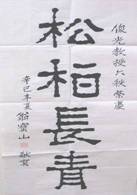 俊光教授六秩榮慶
松柏長青
辛巳冬夏
翁寶山 敬賀